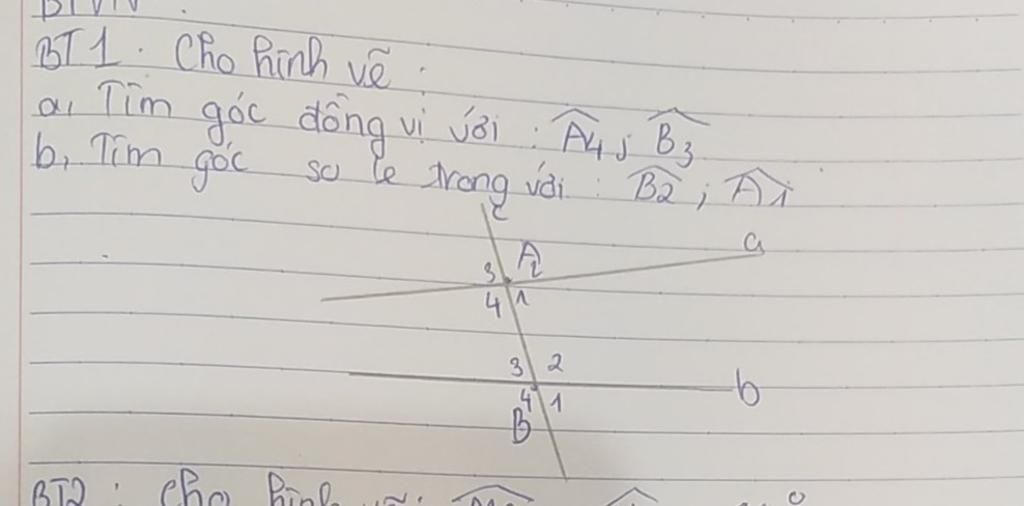 BT1. Cho hình vẽ :
a, Tìm góc đồng vị với : A4 ; B3
b, Tìm góc so le trong với : B2 ; A1
c
A
a
3 2
4 1
3 2
b
4 1
B
BT2 : Cho hình vẽ: